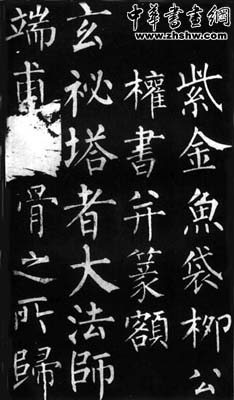 中華書書網
www.zhshw.com
紫金魚袋柳公
權書并篆額
玄祕塔者大法師
端甫骨之所歸